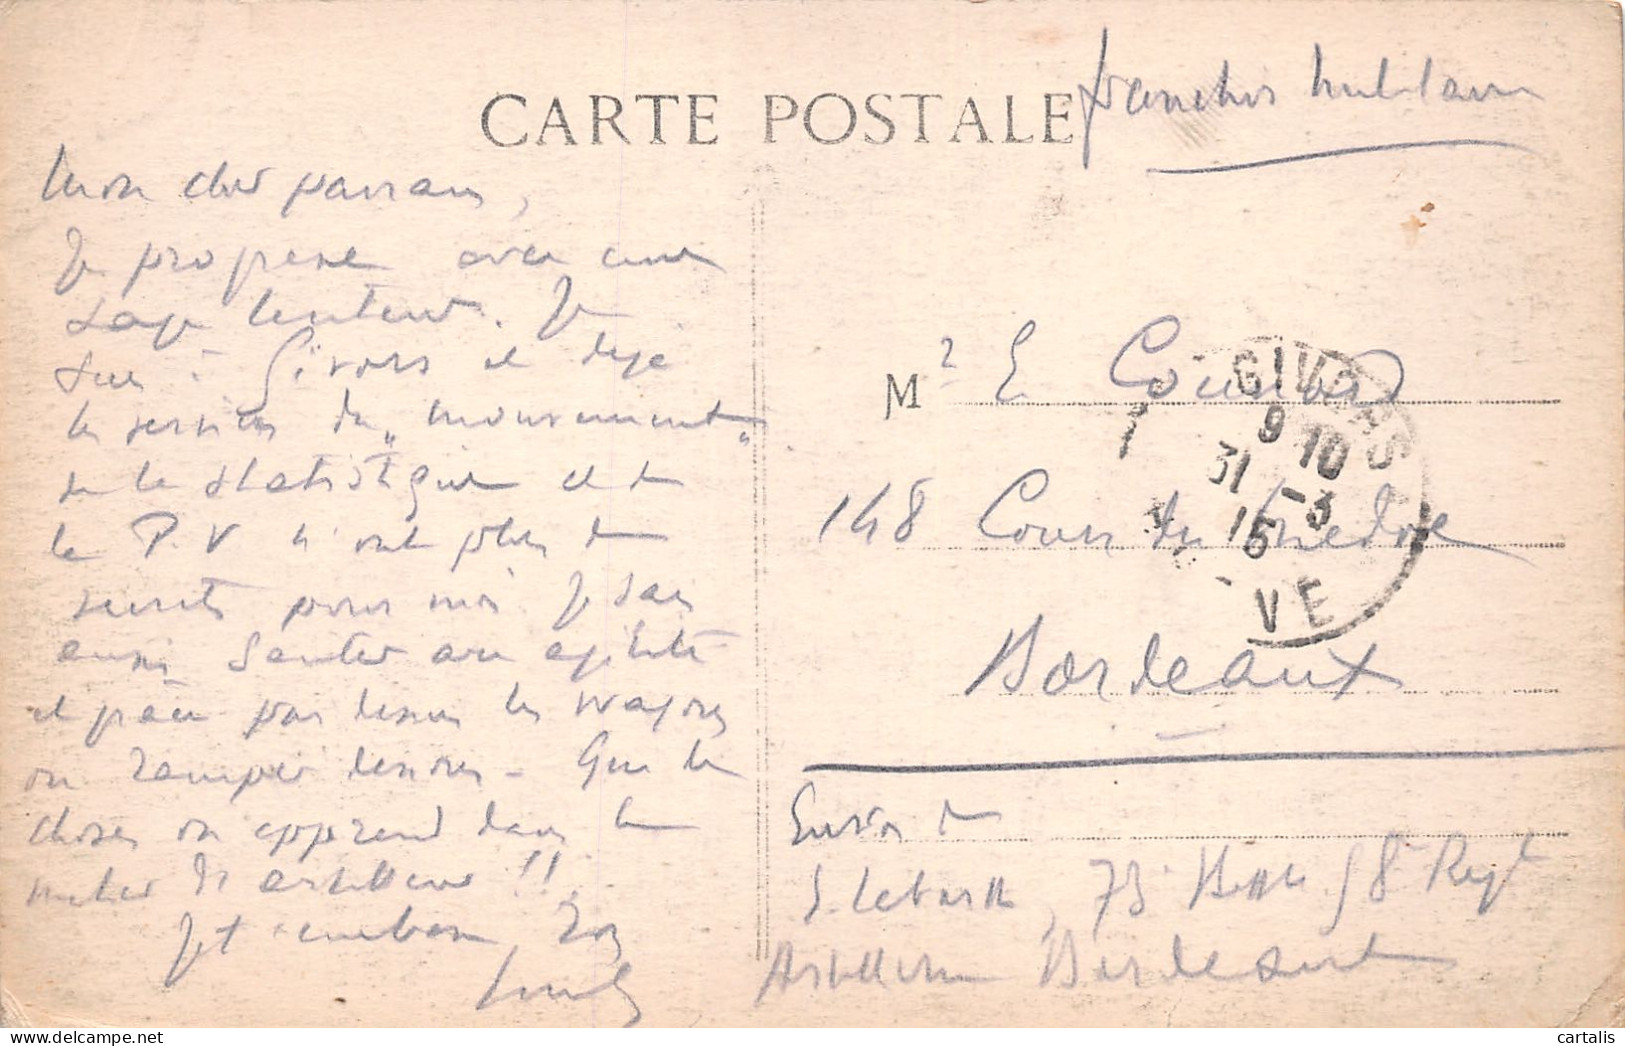 CARTE POSTALE
franchise militaire
Mon cher parrain,
Je progresse avec une
sage lenteur. Je
suis à Givors et déjà
le service du "mouvement"
de la statistique et de
la P.V n'ont plus de
secrets pour moi Je sais
aussi sauter avec agilité
et grâce par dessus les wagons
ou ramper dessous - Que de
choses on apprend dans le
métier d'artilleur !!
Je t'embrasse,
M r E
148 Cours du Médoc
Bordeaux
GIVORS
9 10
31 -3
15
Envoi de
73 Batterie 58e Regt
Artillerie Bordeaux
cartalis